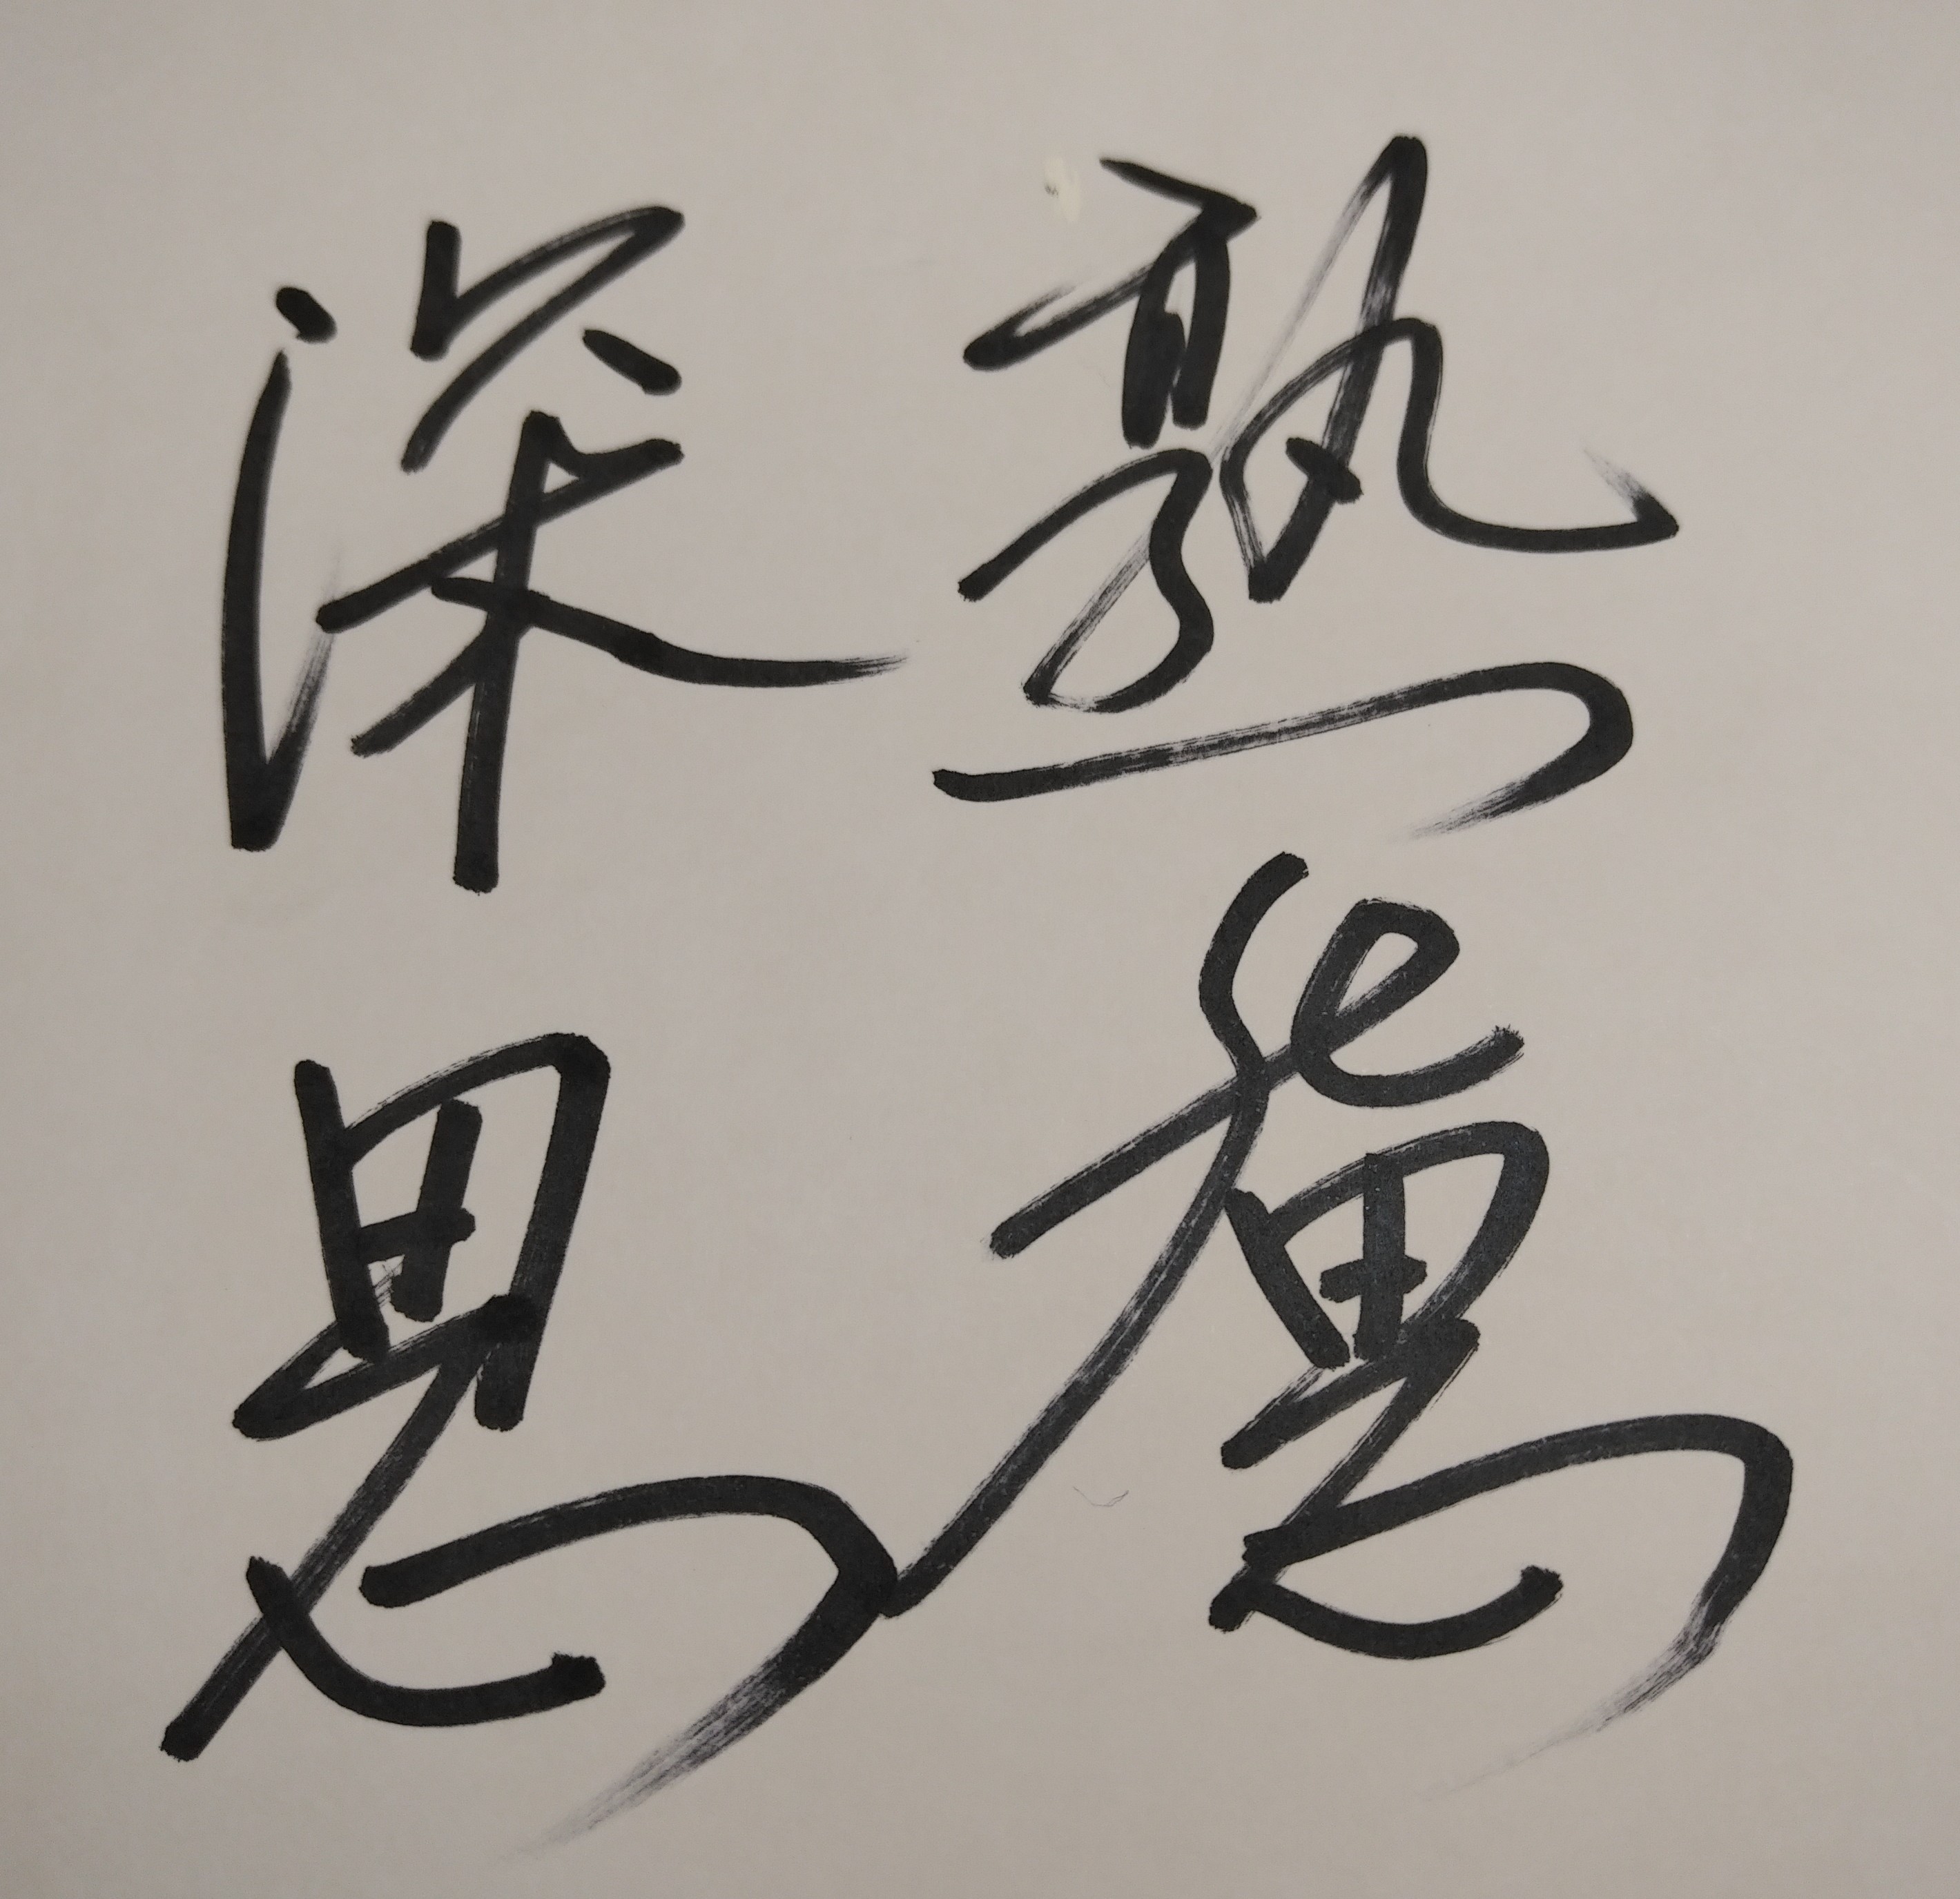 深思
熟慮